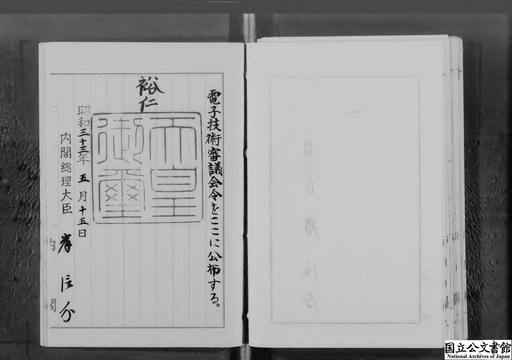 電子技術審議会令をここに公布する。
裕仁
天皇
御璽
昭和三十三年五月十五日
内閣総理大臣 岸信介
内閣
国立公文書館
National Archives of Japan